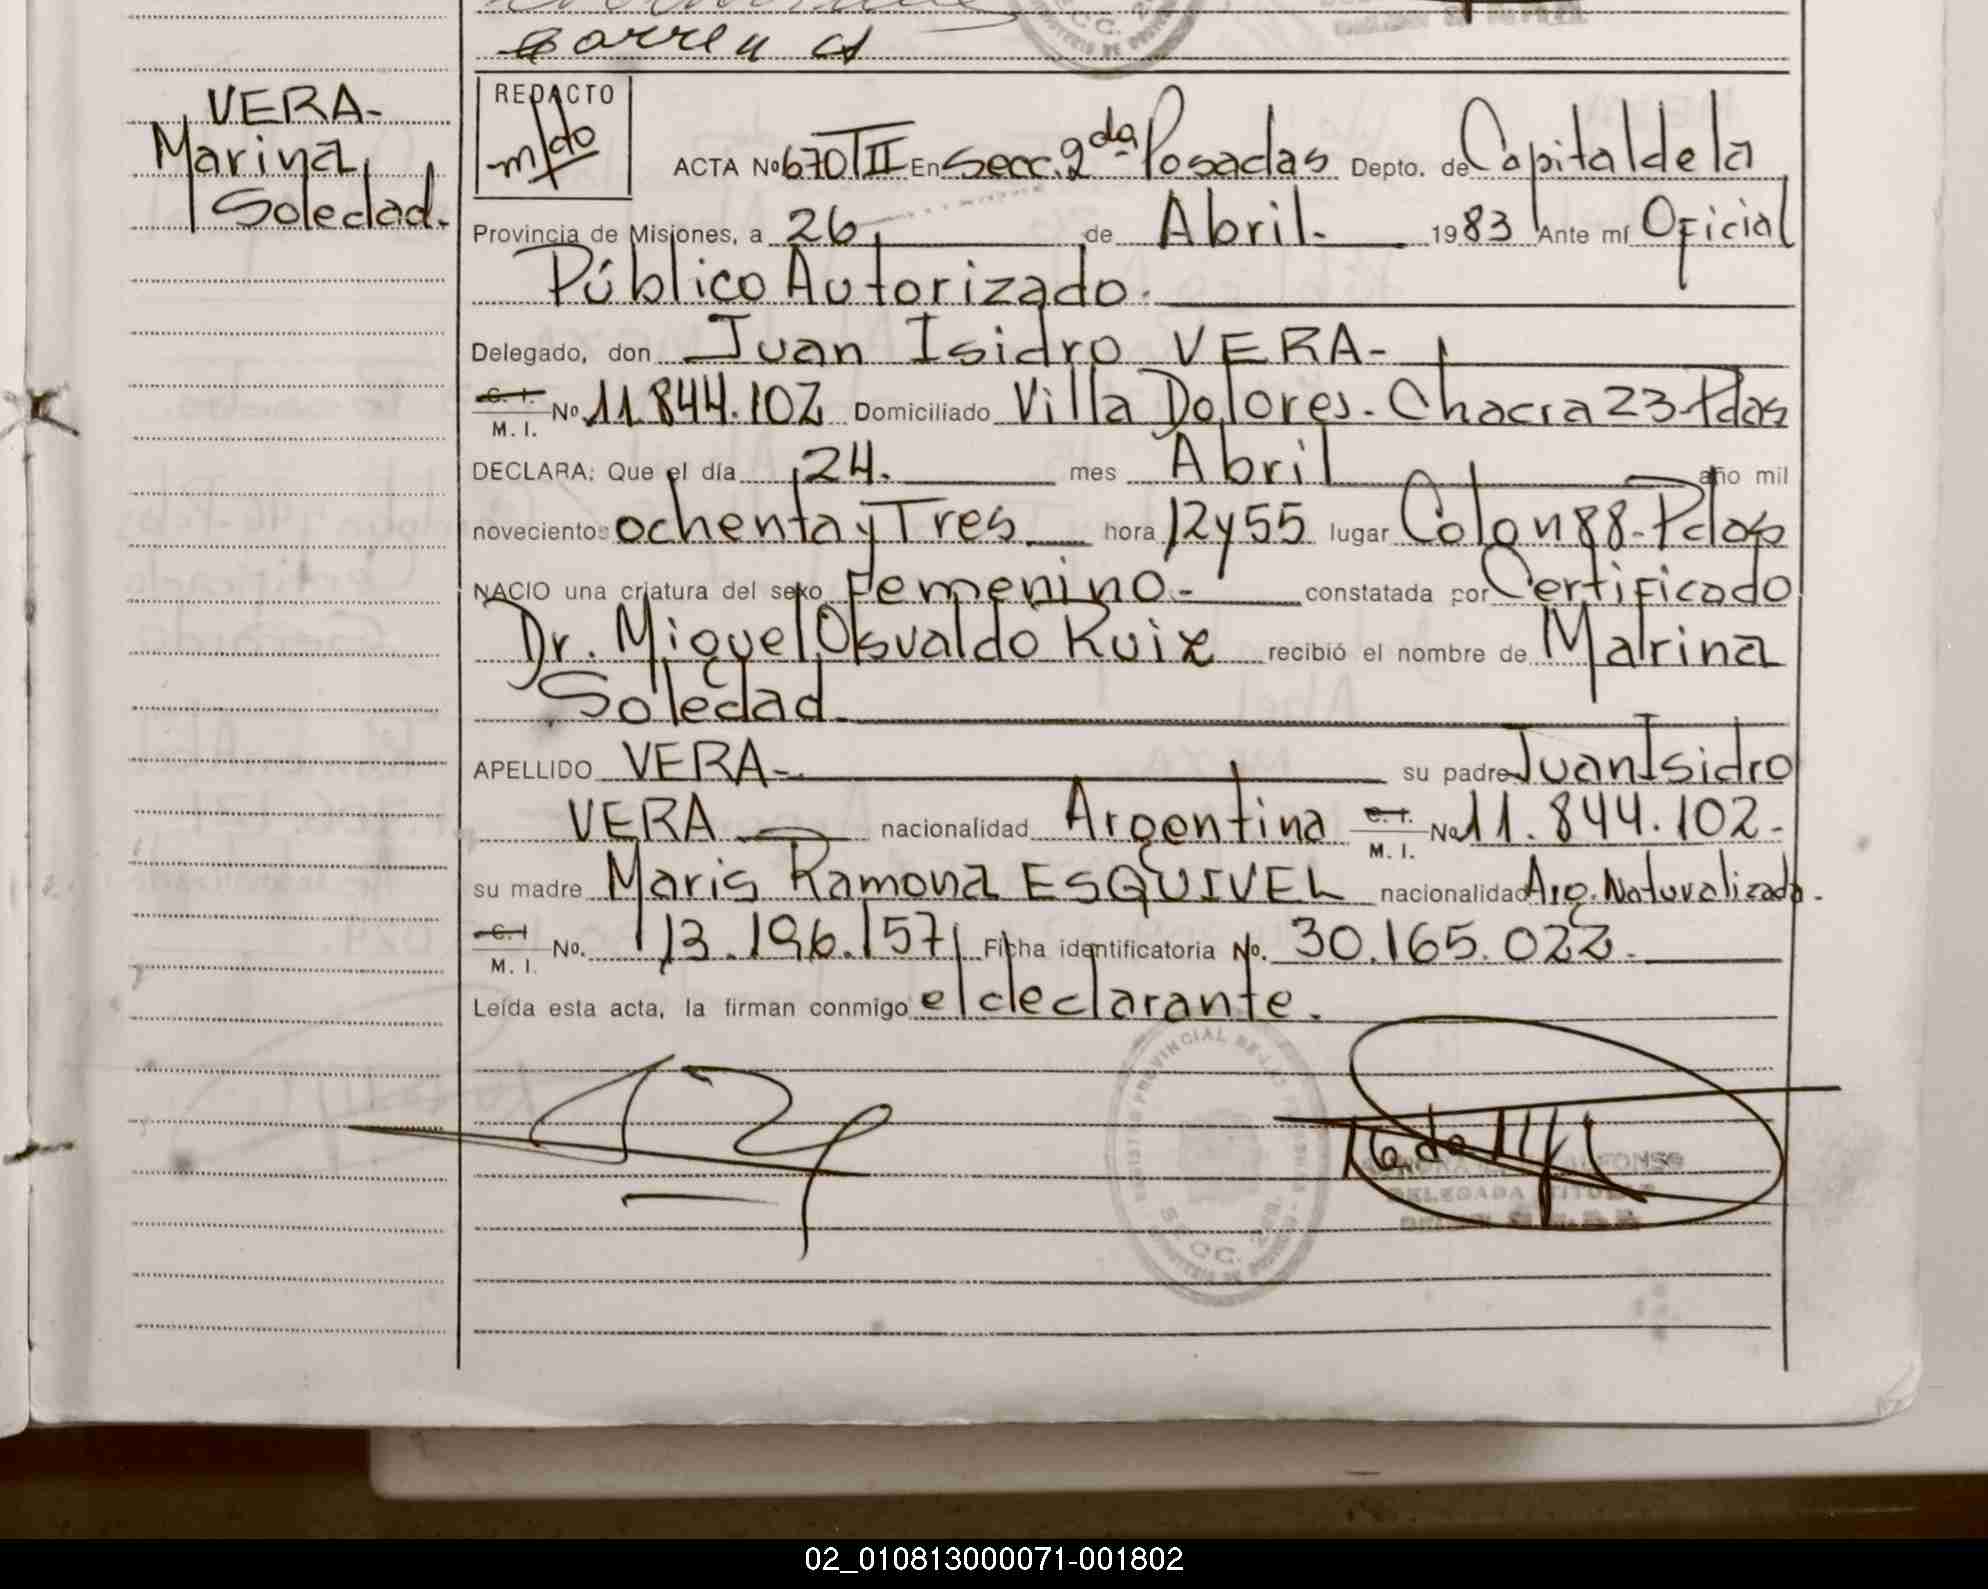 Carrera
VERA-
Marina
Soledad.
REDACTO
m/do
ACTA Nº 670 TII En Secc. 2da Posadas Depto. de Capital de la
Provincia de Misiones, a 26 de Abril. 1983 Ante mí Oficial
Público Autorizado.
Delegado, don Juan Isidro VERA-
C. I.
M. I. Nº 11.844.102 Domiciliado Villa Dolores. Chacra 23-Pdas
DECLARA: Que el día 24. mes Abril año mil
novecientos ochenta y Tres hora 12 y 55 lugar Colon 88-Pdas
NACIO una criatura del sexo Femenino- constatada por Certificado
Dr. Miguel Osvaldo Ruiz recibió el nombre de Marina
Soledad
APELLIDO VERA- su padre Juan Isidro
VERA nacionalidad Argentina C. I. M. I. No 11.844.102-
su madre Maris Ramona ESQUIVEL nacionalidad Arg. Naturalizada.
C. I
M. I. No. 13.196.157 Ficha identificatoria No. 30.165.022.
Leída esta acta, la firman conmigo el declarante.
REGISTRO PROVINCIAL DE LAS PERSONAS
SECC. 2da.
DELEGADA TITULAR
02_010813000071-001802